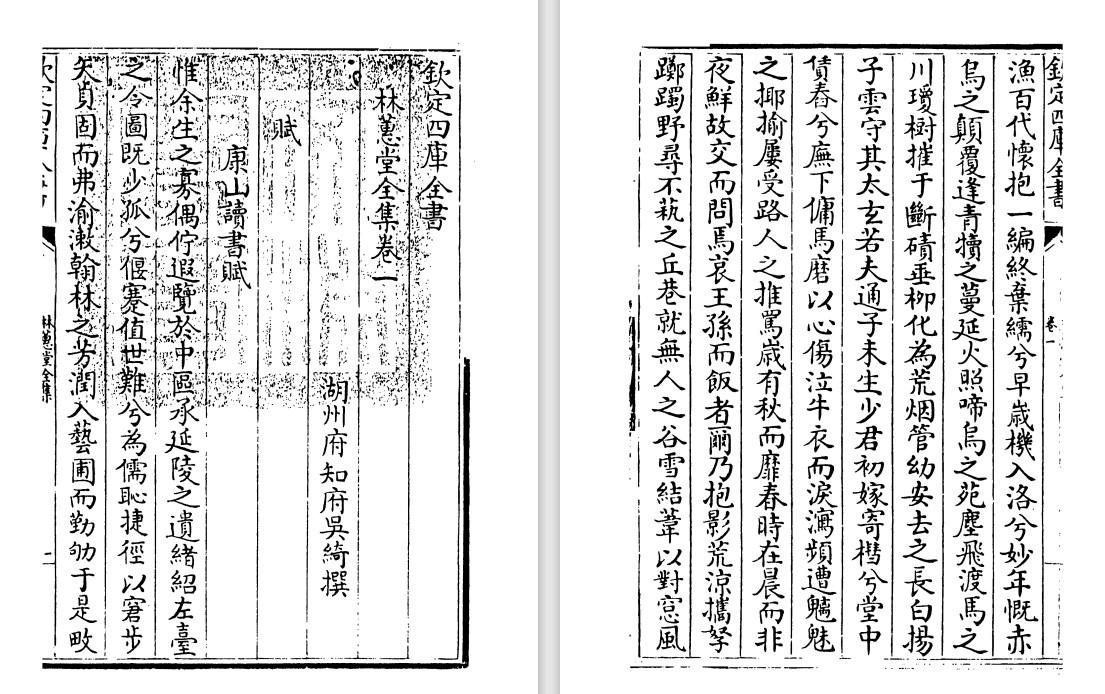 欽定四庫全書
林蕙堂全集卷一
湖州府知府吳綺撰
賦
康山讀書賦
惟余生之寡偶佇遐覽於中區承延陵之遺緒紹左臺
之令圖既少孤兮偃蹇值世難兮為儒恥捷徑以窘步
矢貞固而弗渝漱翰林之芳潤入藝圃而勤劬于是畋
林蕙堂全集
欽定四庫全書
卷一
漁百代懷抱一編終棄繻兮早歳機入洛兮妙年慨赤
烏之顛覆逢青犢之蔓延火照啼烏之苑塵飛渡馬之
川瓊樹摧于斷磧垂柳化為荒烟管幼安去之長白揚
子雲守其太玄若夫通子未生少君初嫁寄兮堂中
賃舂兮廡下傭馬磨以心傷泣牛衣而淚瀉頻遭魑魅
之揶揄屢受路人之推罵歳有秋而靡春時在晨而非
夜鮮故交而問焉哀王孫而飯者爾乃抱影荒涼攜孥
躑躅野尋不蓺之丘巷就無人之谷雪結葦以對窓風